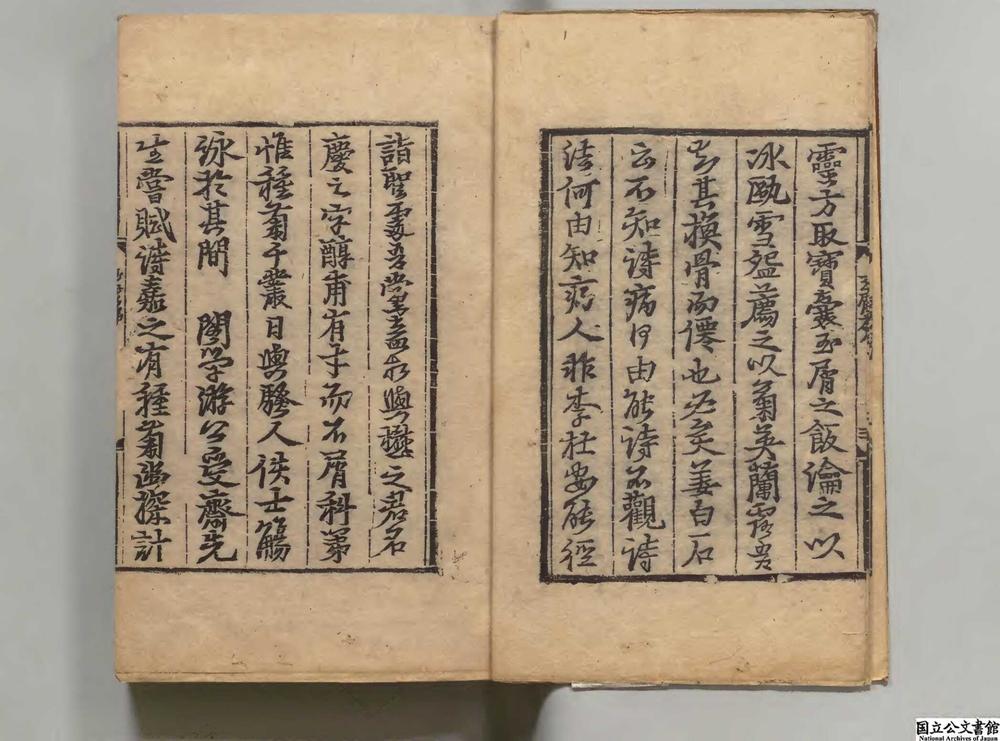 靈方取寶囊玉屑之飯瀹之以
冰甌雪盌薦之以菊英蘭露吾
知其換骨而僊也必矣姜白石
云不知詩病何由能詩不觀詩
法何由知病人非李杜安能徑
詣聖處吾黨盍相與懋之君名
慶之字醇甫有才而不屑科第
惟種菊千叢日與騷人佚士觴
詠於其間 閣學游公受齋先
生嘗賦詩嘉之有種菊幽探計
国立公文書館
National Archives of Japan